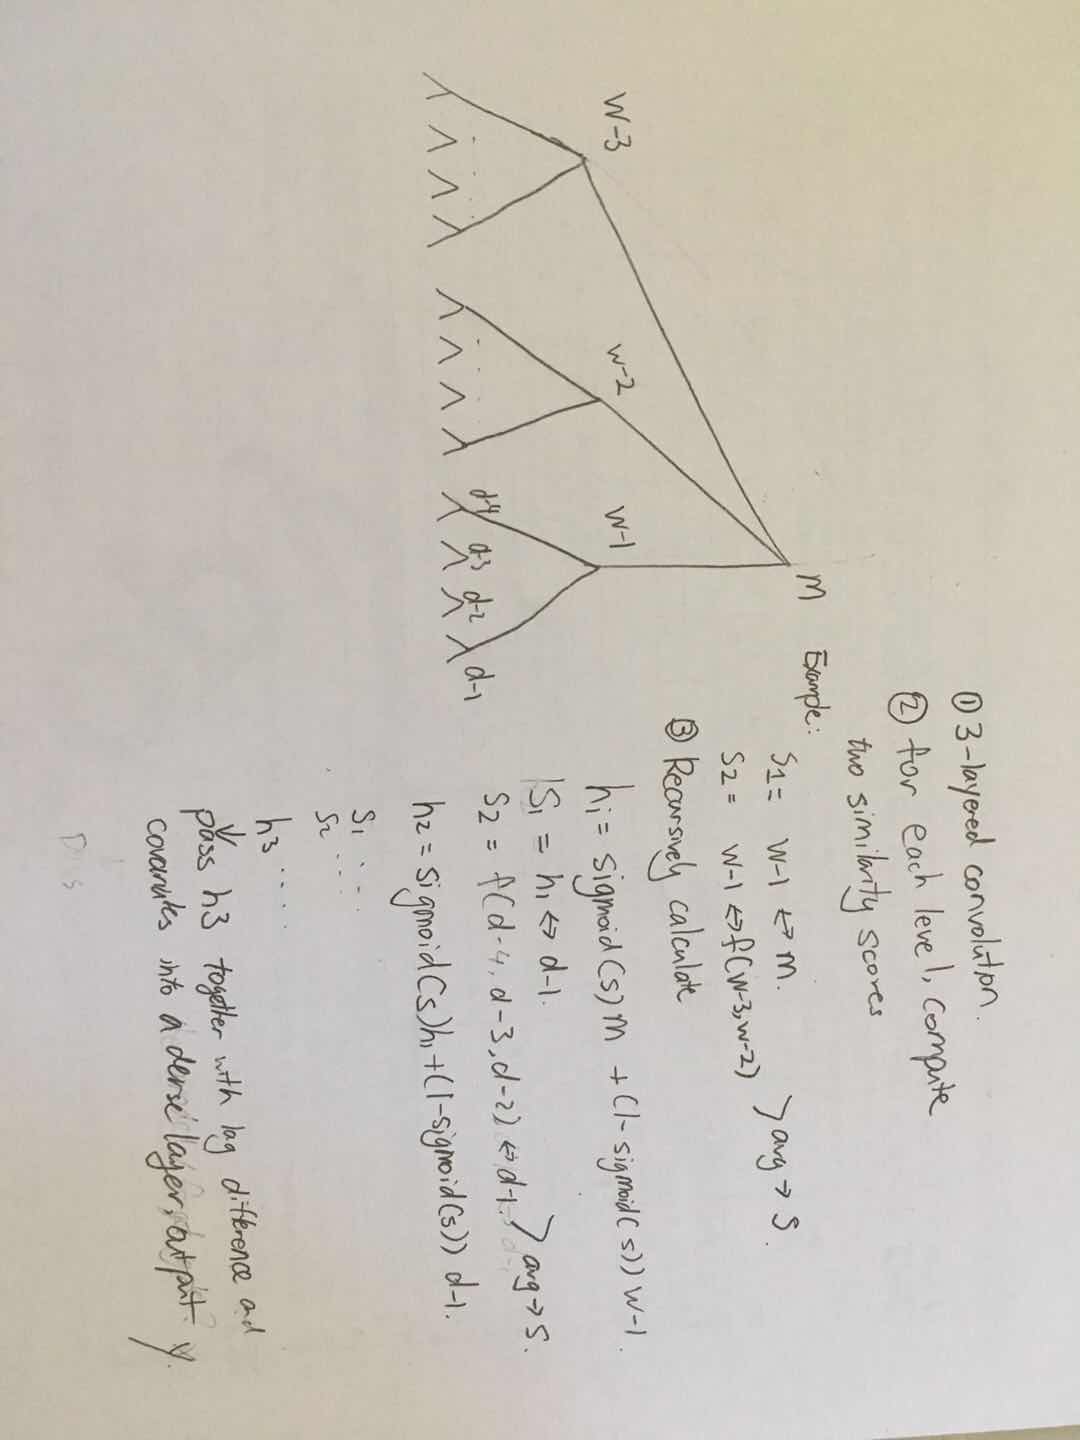 M
W-3
W-2
W-1
d-4
d-3
d-2
d-1
① 3-layered convolution.
② for each level, compute
two similarity scores
Example:
S1 = W-1 ↔ M.
S2 = W-1 ↔ f(W-3, W-2)
> avg → S.
③ Recursively calculate
h1 = sigmoid(s) M + (1-sigmoid(s)) W-1.
S1 = h1 ↔ d-1.
S2 = f(d-4, d-3, d-2) ↔ d-1.
> avg → S.
h2 = sigmoid(s) h1 + (1-sigmoid(s)) d-1.
S1 ...
S2 ...
h3 ....
↓
pass h3 together with lag difference and
covariates into a dense layer, output y.